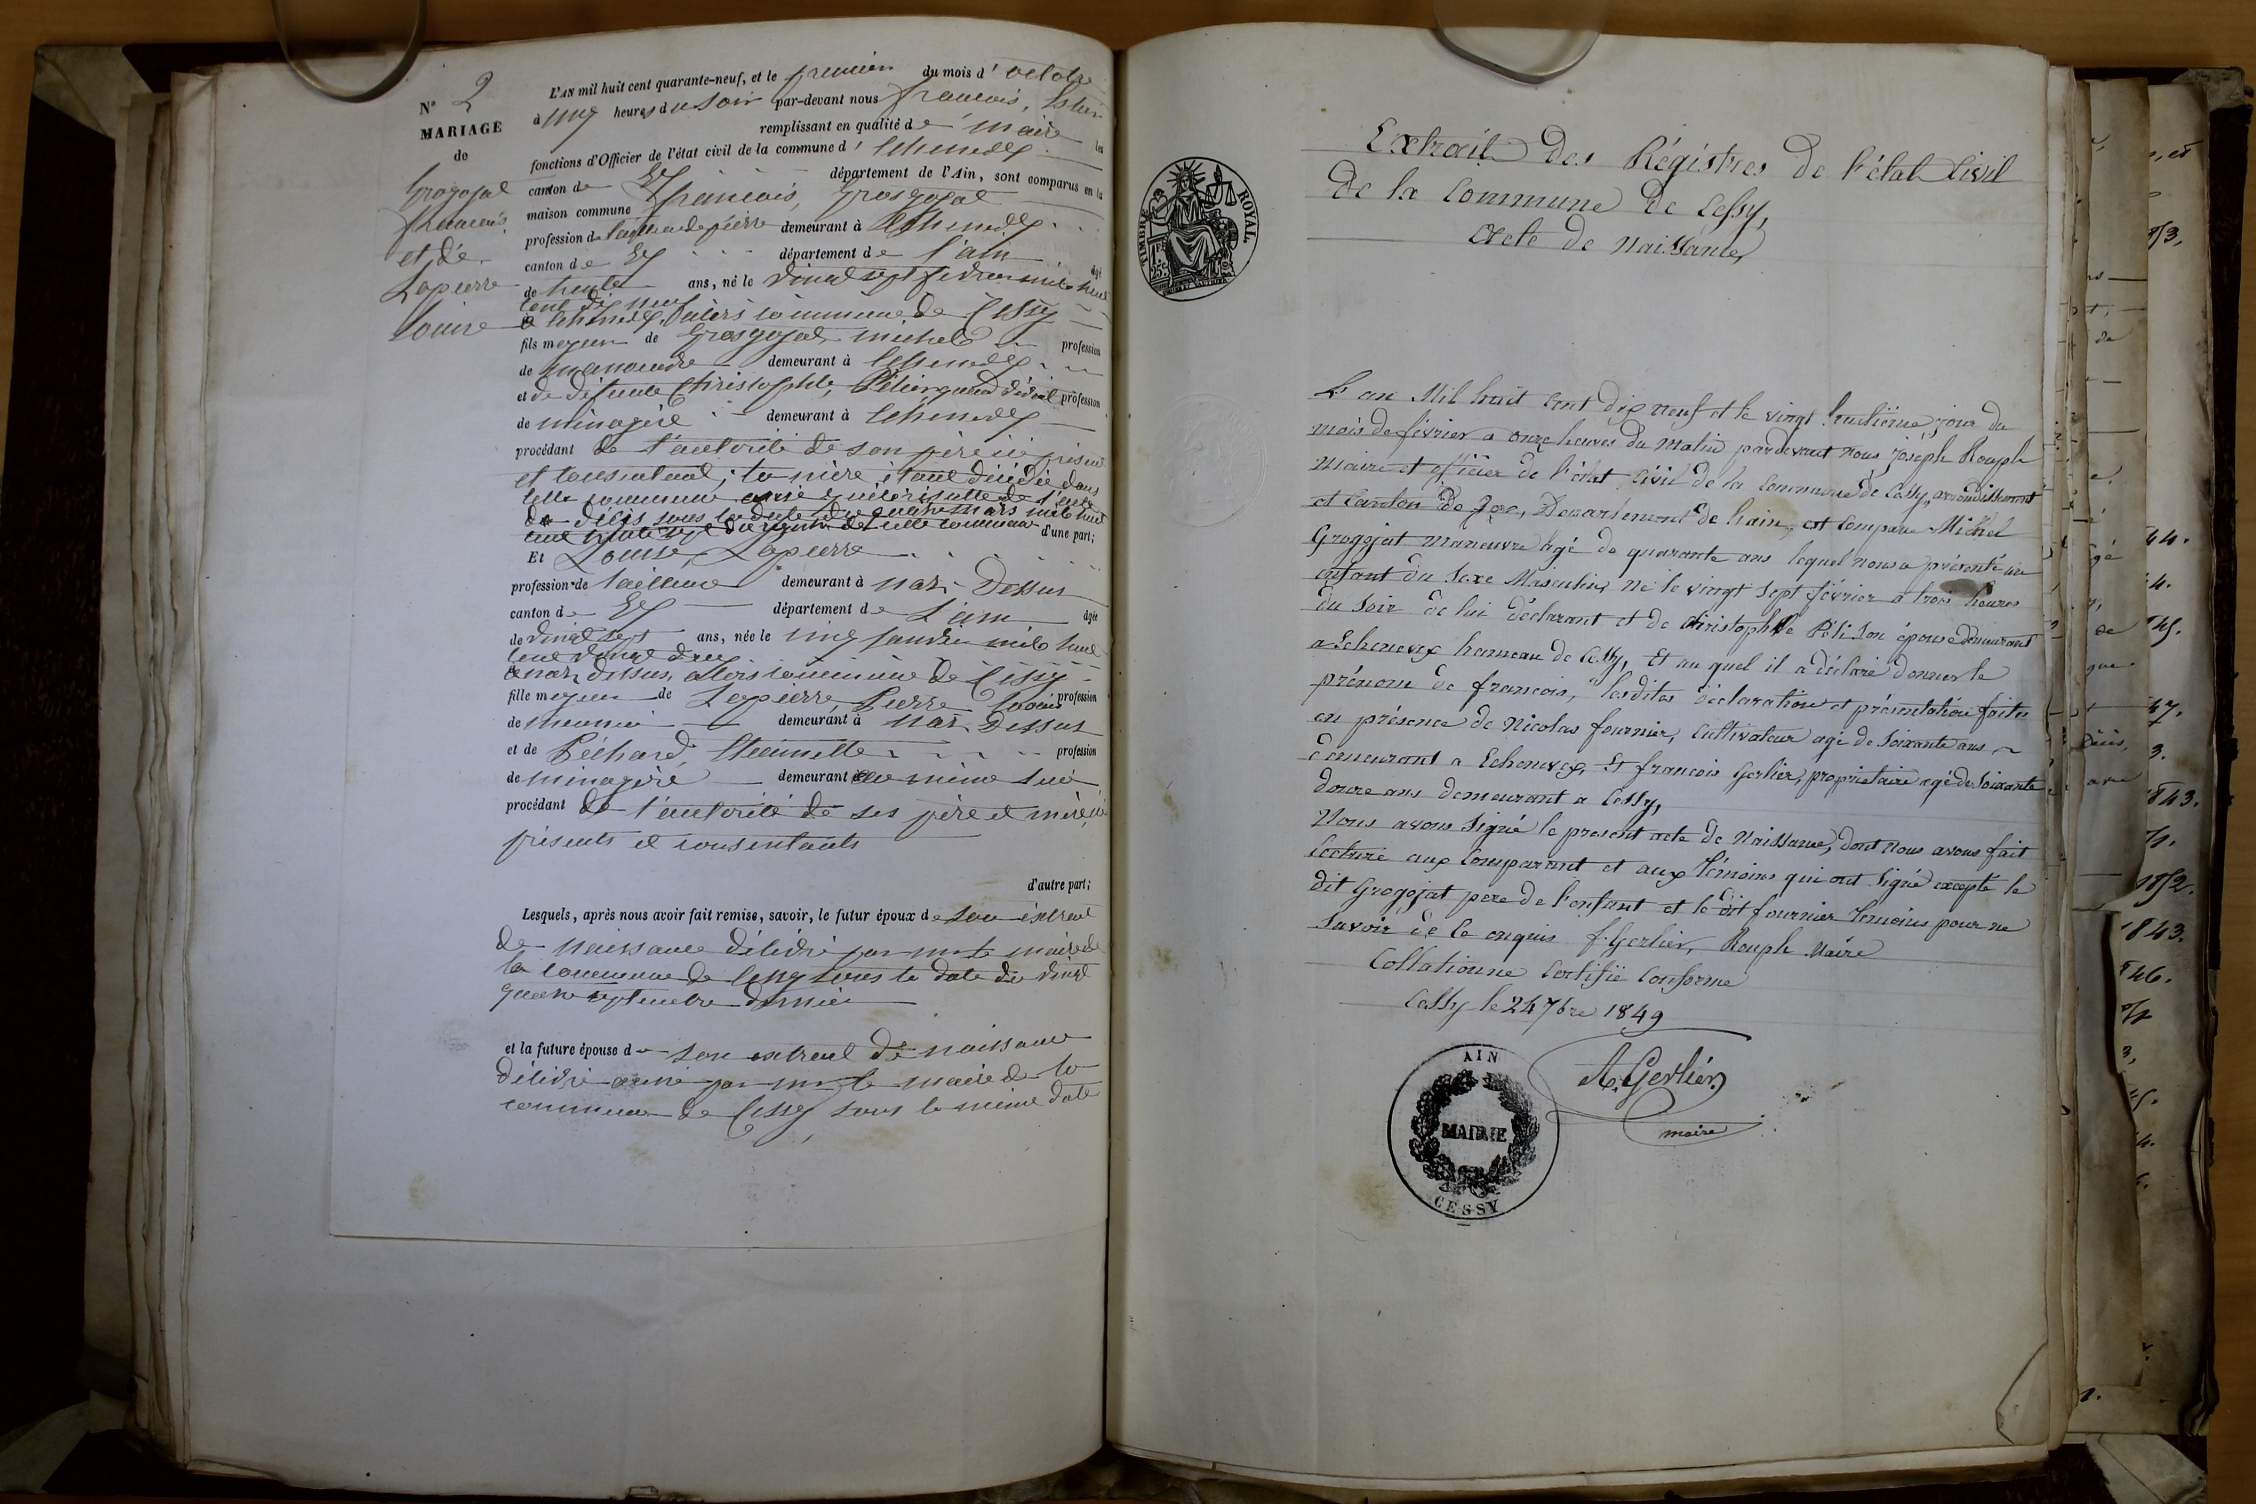 N° 2
MARIAGE
de
Grogojat
françois
et de
Lapierre
Louise
L'AN mil huit cent quarante-neuf, et le premier du mois d' octobre
à cinq heures du soir par-devant nous françois,
remplissant en qualité de maire les
fonctions d'Officier de l'état civil de la commune d' Echenevex
canton de Gex département de l'Ain, sont comparus en la
maison commune françois, Grosgojat
profession de tailleur de pierre demeurant à Echenevex
canton de Gex département de l'ain âgé
de trente ans, né le vingt sept février mile huit
cent dix neuf
à Echenevex, alors commune de Cessy
fils majeur de Grosgojat michel profession
de manoeuvre demeurant à Echenevex
et de défunte Christophle, Pélisson quand vivait profession
de ménagère demeurant à Echenevex
procédant de l'autorité de son père ici présent
et consentant; la mère étant décédée dans
cette commune
d'une part;
Et Louise, Lapierre
profession de tailleuse demeurant à naz-Dessus
canton de Gex département de L'ain âgée
de vingt sept ans, née le cinq janvier mile huit
cent vingt deux
à naz-dessus, alors commune de Cessy
fille majeur de Lapierre, Pierre profession
de meunier demeurant à naz-Dessus
et de Péchard, profession
de ménagère demeurant au même lieu
procédant de l'autorité de ses père et mère ici
présents et consentants
d'autre part;
Lesquels, après nous avoir fait remise, savoir, le futur époux de son extrait
de naissance délivré par mr le maire de
la commune de Cessy sous la date du vingt
quatre septembre dernier
et la future épouse de son extrait de naissance
délivré aussi par mr le maire de la
commune de Cessy, sous la même date
TIMBRE ROYAL
Extrait des Régistres de l'état Civil
De la Commune de Cessy,
Acte de Naissance,
L'an Mil huit Cent dix neuf et le vingt huitième jour du
mois de février a onze heures du Matin pardevant nous joseph Rouph
Maire et officier de l'état Civil de la Commune de Cessy, arrondissement
et Canton de Gex, Departement de Lain, est Comparu Michel
Grogojat Manoeuvre agé de quarante ans lequel nous a présenté un
enfant du Sexe Masculin, né le vingt Sept février a trois heures
du Soir de lui déclarant et de Christophle Pélison épouse demeurant
a Echenevex hameau de Cessy, Et au quel il a déclaré donner le
prénom de francois, lesdites déclaration et présentation faites
en présence de Nicolas fournier, Cultivateur agé de Soixante ans
demeurant a Echenevex, Et francois Gerlier, proprietaire agé de Soixante
douze ans demeurant a Cessy,
Nous avons Signé le present acte de Naissance, dont Nous avons fait
lecture aux Comparant et aux témoins qui ont Signé excepté le
dit Grogojat pere de l'enfant et le dit fournier témoins pour ne
Savoir de ce enquis f. Gerlier, Rouph Maire
Collationne Certifié Conforme
Cessy le 24 7bre 1849
A. Gerlier
maire
AIN
MAIRIE
CESSY